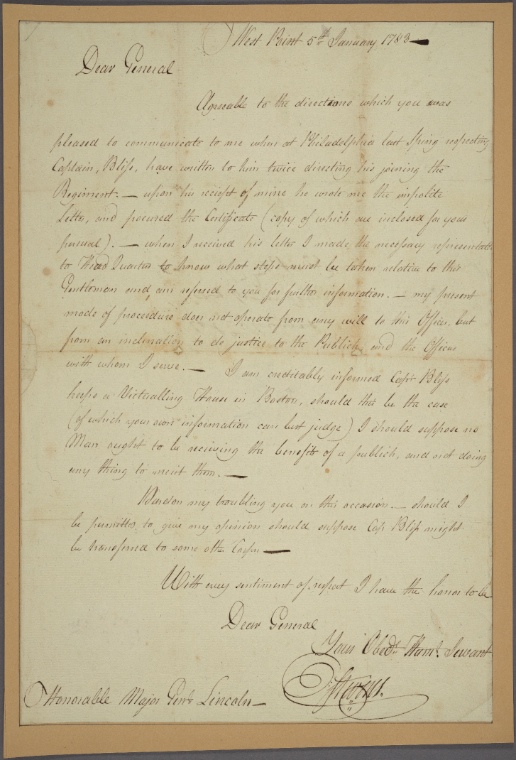 West Point 5th January 1783
Dear General
Agreable to the directions which you was
pleased to communicate to me when at Philadelphia last Spring respecting
Captain, Bliss, have written to him twice directing his joining the
Regiment. — upon his reciept of mine he wrote me the impolite
Letter, and procured the Certificate (copy of which are inclosed for your
perusal). — when I received his letter I made the necessary representation
to Head Quarters to know what steps must be taken relative to this
Gentleman and am referred to you for further information. — my present
mode of proceeding does not operate from any will to this Officer, but
from an inclination to do justice to the Publick and the Officers
with whom I serve. — I am creditably informed Capt. Bliss
keeps a Victualling House in Boston, should this be the case
(of which your own information can best judge) I should suppose no
Man ought to be receiving the benefits of a publick, and not doing
any thing to merit them. —
Pardon my troubling you on this occasion. — should I
be permitted to give my opinion should suppose Cap. Bliss might
be transferred to some othr Corps —
With every sentiment of respect I have the honor to be
Dear General
Your Obedt. Hum. Servant
Honorable Major Genl. Lincoln —